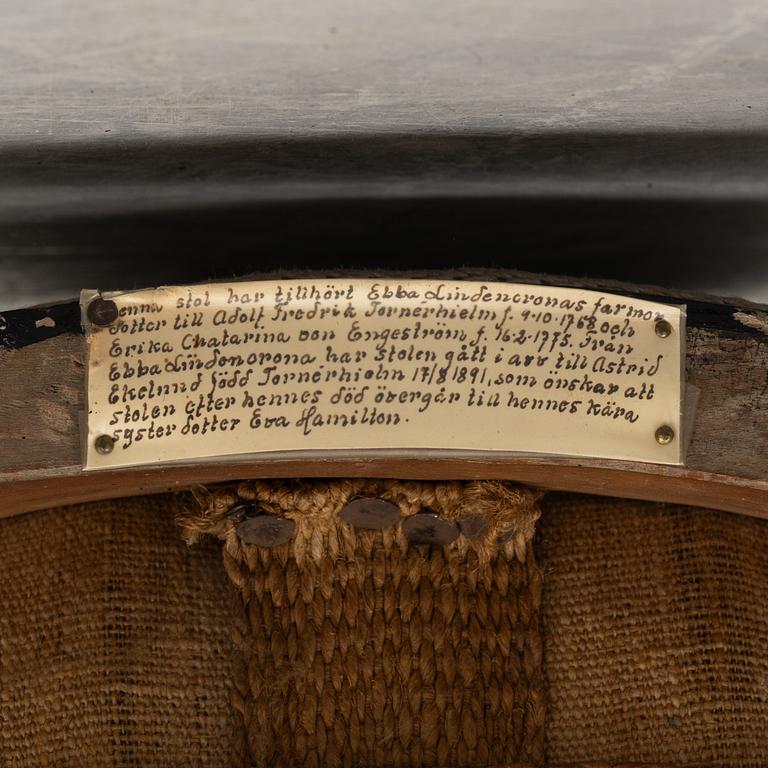 Denna stol har tillhört Ebba Lindencronas farmor
dotter till Adolf Fredrik Tornerhielm f. 9.10.1768 och
Erika Chatarina von Engeström f. 16.2.1775. Från
Ebba Lindencrona har stolen gått i arv till Astrid
Ekelund född Tornérhielm 17/8 1891, som önskar att
stolen efter hennes död övergår till hennes kära
syster dotter Eva Hamilton.